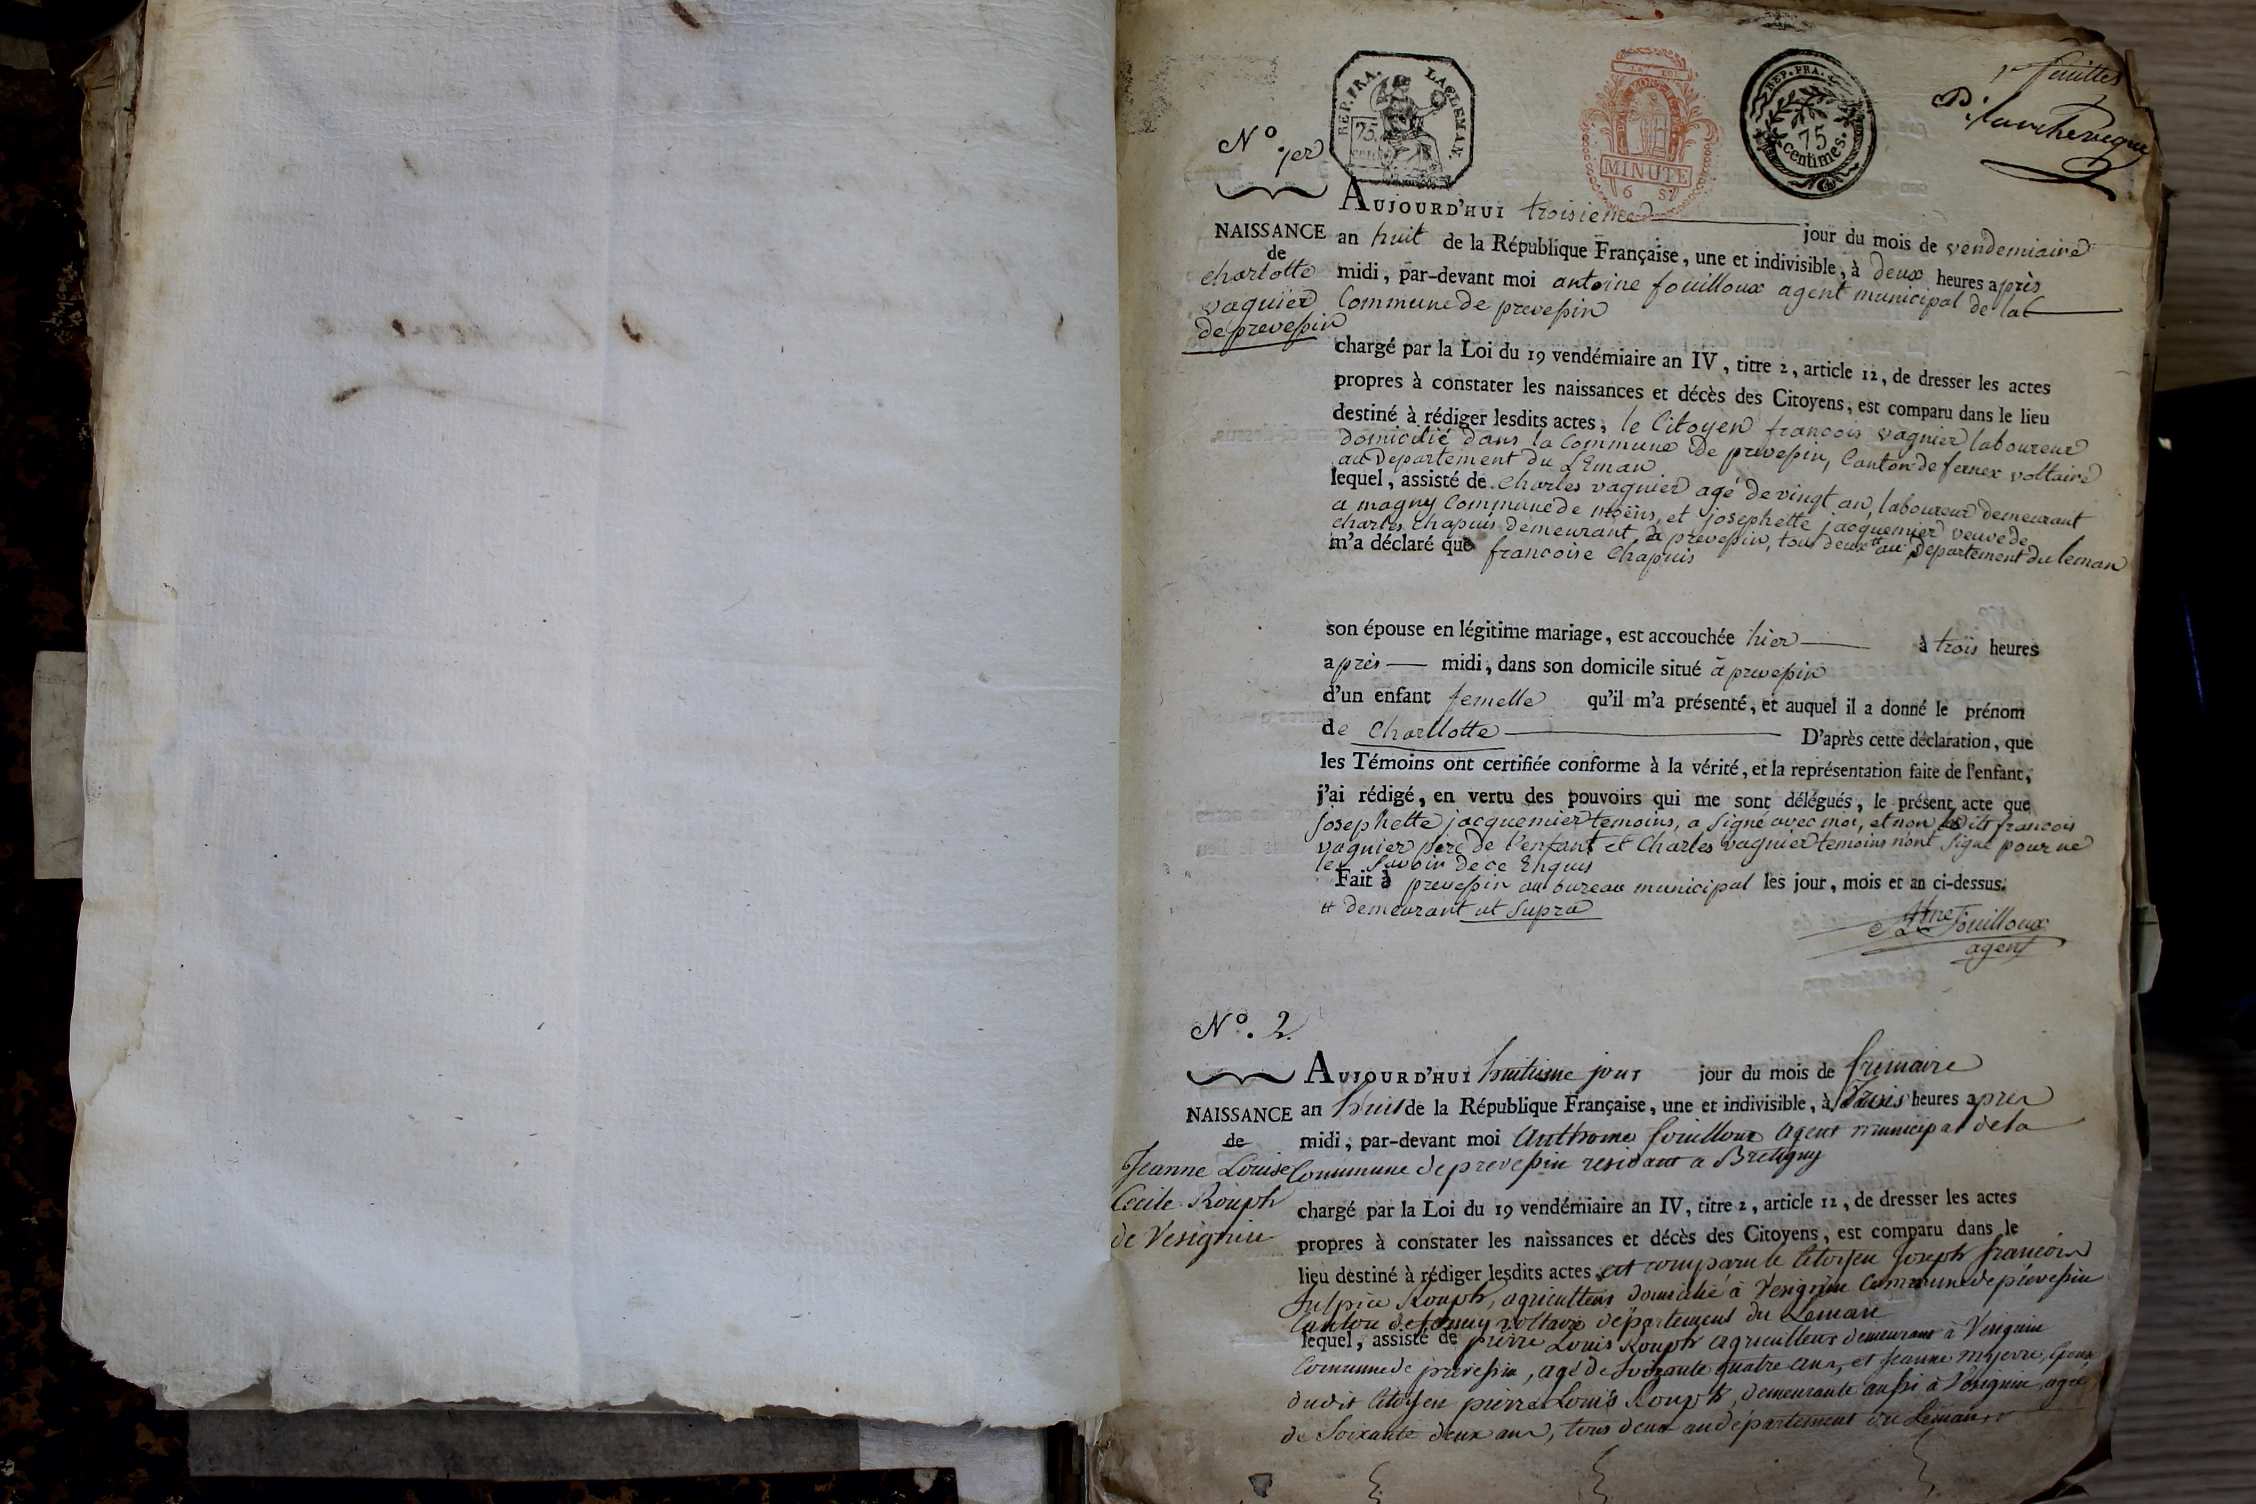 1er feuillet
REP. FRA. LAC LEMAN.
75 cent.
MINUTE
REP. FRA.
75
centimes.
N° 1er
NAISSANCE
de
charlotte
vagnier
de prevessin
AUJOURD'HUI troisieme jour du mois de vendemiaire
an huit de la République Française, une et indivisible, à deux heures après
midi, par-devant moi antoine fouilloux agent municipal de la
Commune de prevessin
chargé par la Loi du 19 vendémiaire an IV, titre 2, article 12, de dresser les actes
propres à constater les naissances et décès des Citoyens, est comparu dans le lieu
destiné à rédiger lesdits actes, le Citoyen francois vagnier laboureur
domicilié dans la Commune De prevessin, Canton de fernex voltaire
au Departement du Léman
lequel, assisté de Charles vagnier agé de vingt an, laboureur demeurant
a magny Commune de moëns, et josephette jacquemier veuve de
charles chapuis demeurant à prevessin, tous deux # au Departement du leman
m'a déclaré que francoise Chapuis
son épouse en légitime mariage, est accouchée hier à trois heures
après midi, dans son domicile situé à prevessin
d'un enfant femelle qu'il m'a présenté, et auquel il a donné le prénom
de Charllotte D'après cette déclaration, que
les Témoins ont certifiée conforme à la vérité, et la représentation faite de l'enfant,
j'ai rédigé, en vertu des pouvoirs qui me sont délégués, le présent acte que
Josephette jacquemier temoins, a signé avec moi, et non lesdits francois
vagnier pere de l'enfant et Charles vagnier temoins n'ont signé pour ne
le savoir de ce Enquis
Fait à prevessin au bureau municipal les jour, mois et an ci-dessus.
# demeurant ut supra
Atne Fouilloux
agent
N°. 2.
NAISSANCE
de
Jeanne Louise
Cecile Rouph
de Vesignin
AUJOURD'HUI huitieme jour jour du mois de frimaire
an huit de la République Française, une et indivisible, à trois heures apres
midi, par-devant moi Anthoine fouilloux Agent municipal de la
Commune de prevessin residant a Bretigny
chargé par la Loi du 19 vendémiaire an IV, titre 2, article 12, de dresser les actes
propres à constater les naissances et décès des Citoyens, est comparu dans le
lieu destiné à rédiger lesdits actes, est comparu le Citoyen Joseph francois
Sulpice Rouph, agriculteur domicilié à Vesignin Commune de prévessin
Canton de fernex voltaire département du Leman
lequel, assisté de pierre Louis Rouph agriculteur demeurant à Vesignin
Commune de prevessin, agé de Soixante quatre ans, et Jeanne
dudit Citoyen pierre Louis Rouph, demeurante aussi à Vesignin, agée
de Soixante deux ans, tous deux au département du Leman